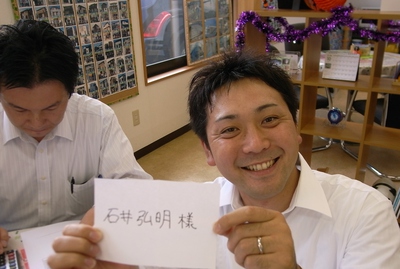 石井弘明 様